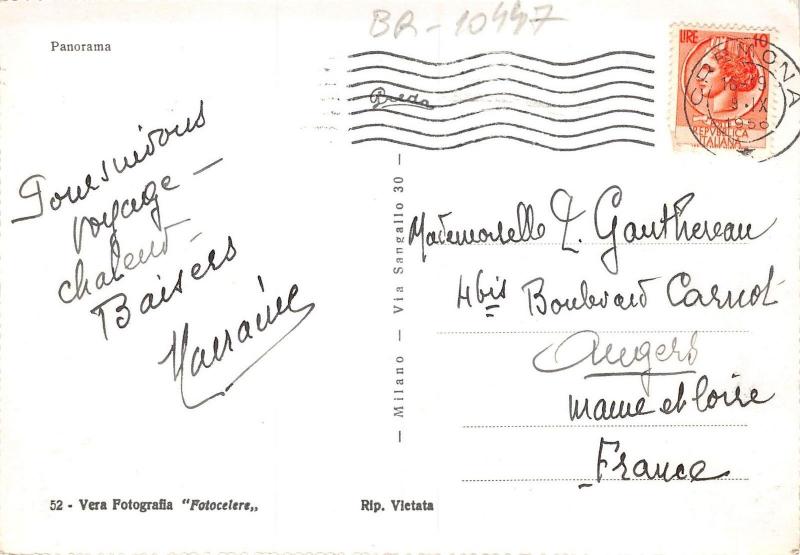 BR-10447
Panorama
LIRE 10
CREMONA
9.IX
1956
REPVBBLICA
ITALIANA
Breda
Poursuivons
voyage —
chaleur —
Baisers
Marraine
— Milano — Via Sangallo 30 —
Mademoiselle Z. Gauthereau
4bis Boulevard Carnot
Angers
Maine et Loire
France
52 - Vera Fotografia "Fotocelere,,
Rip. Vietata